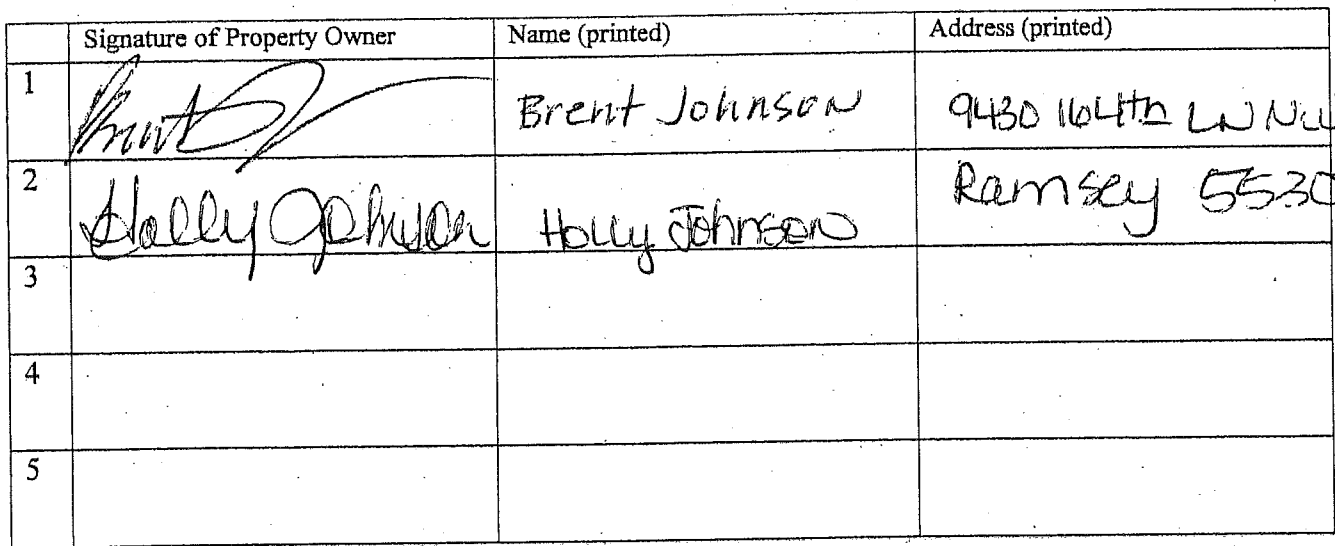 Signature of Property Owner Name (printed) Address (printed)
1 Brent Johnson 9430 164th LN NW
2 Holly Johnson Holly Johnson Ramsey 5530
3
4
5